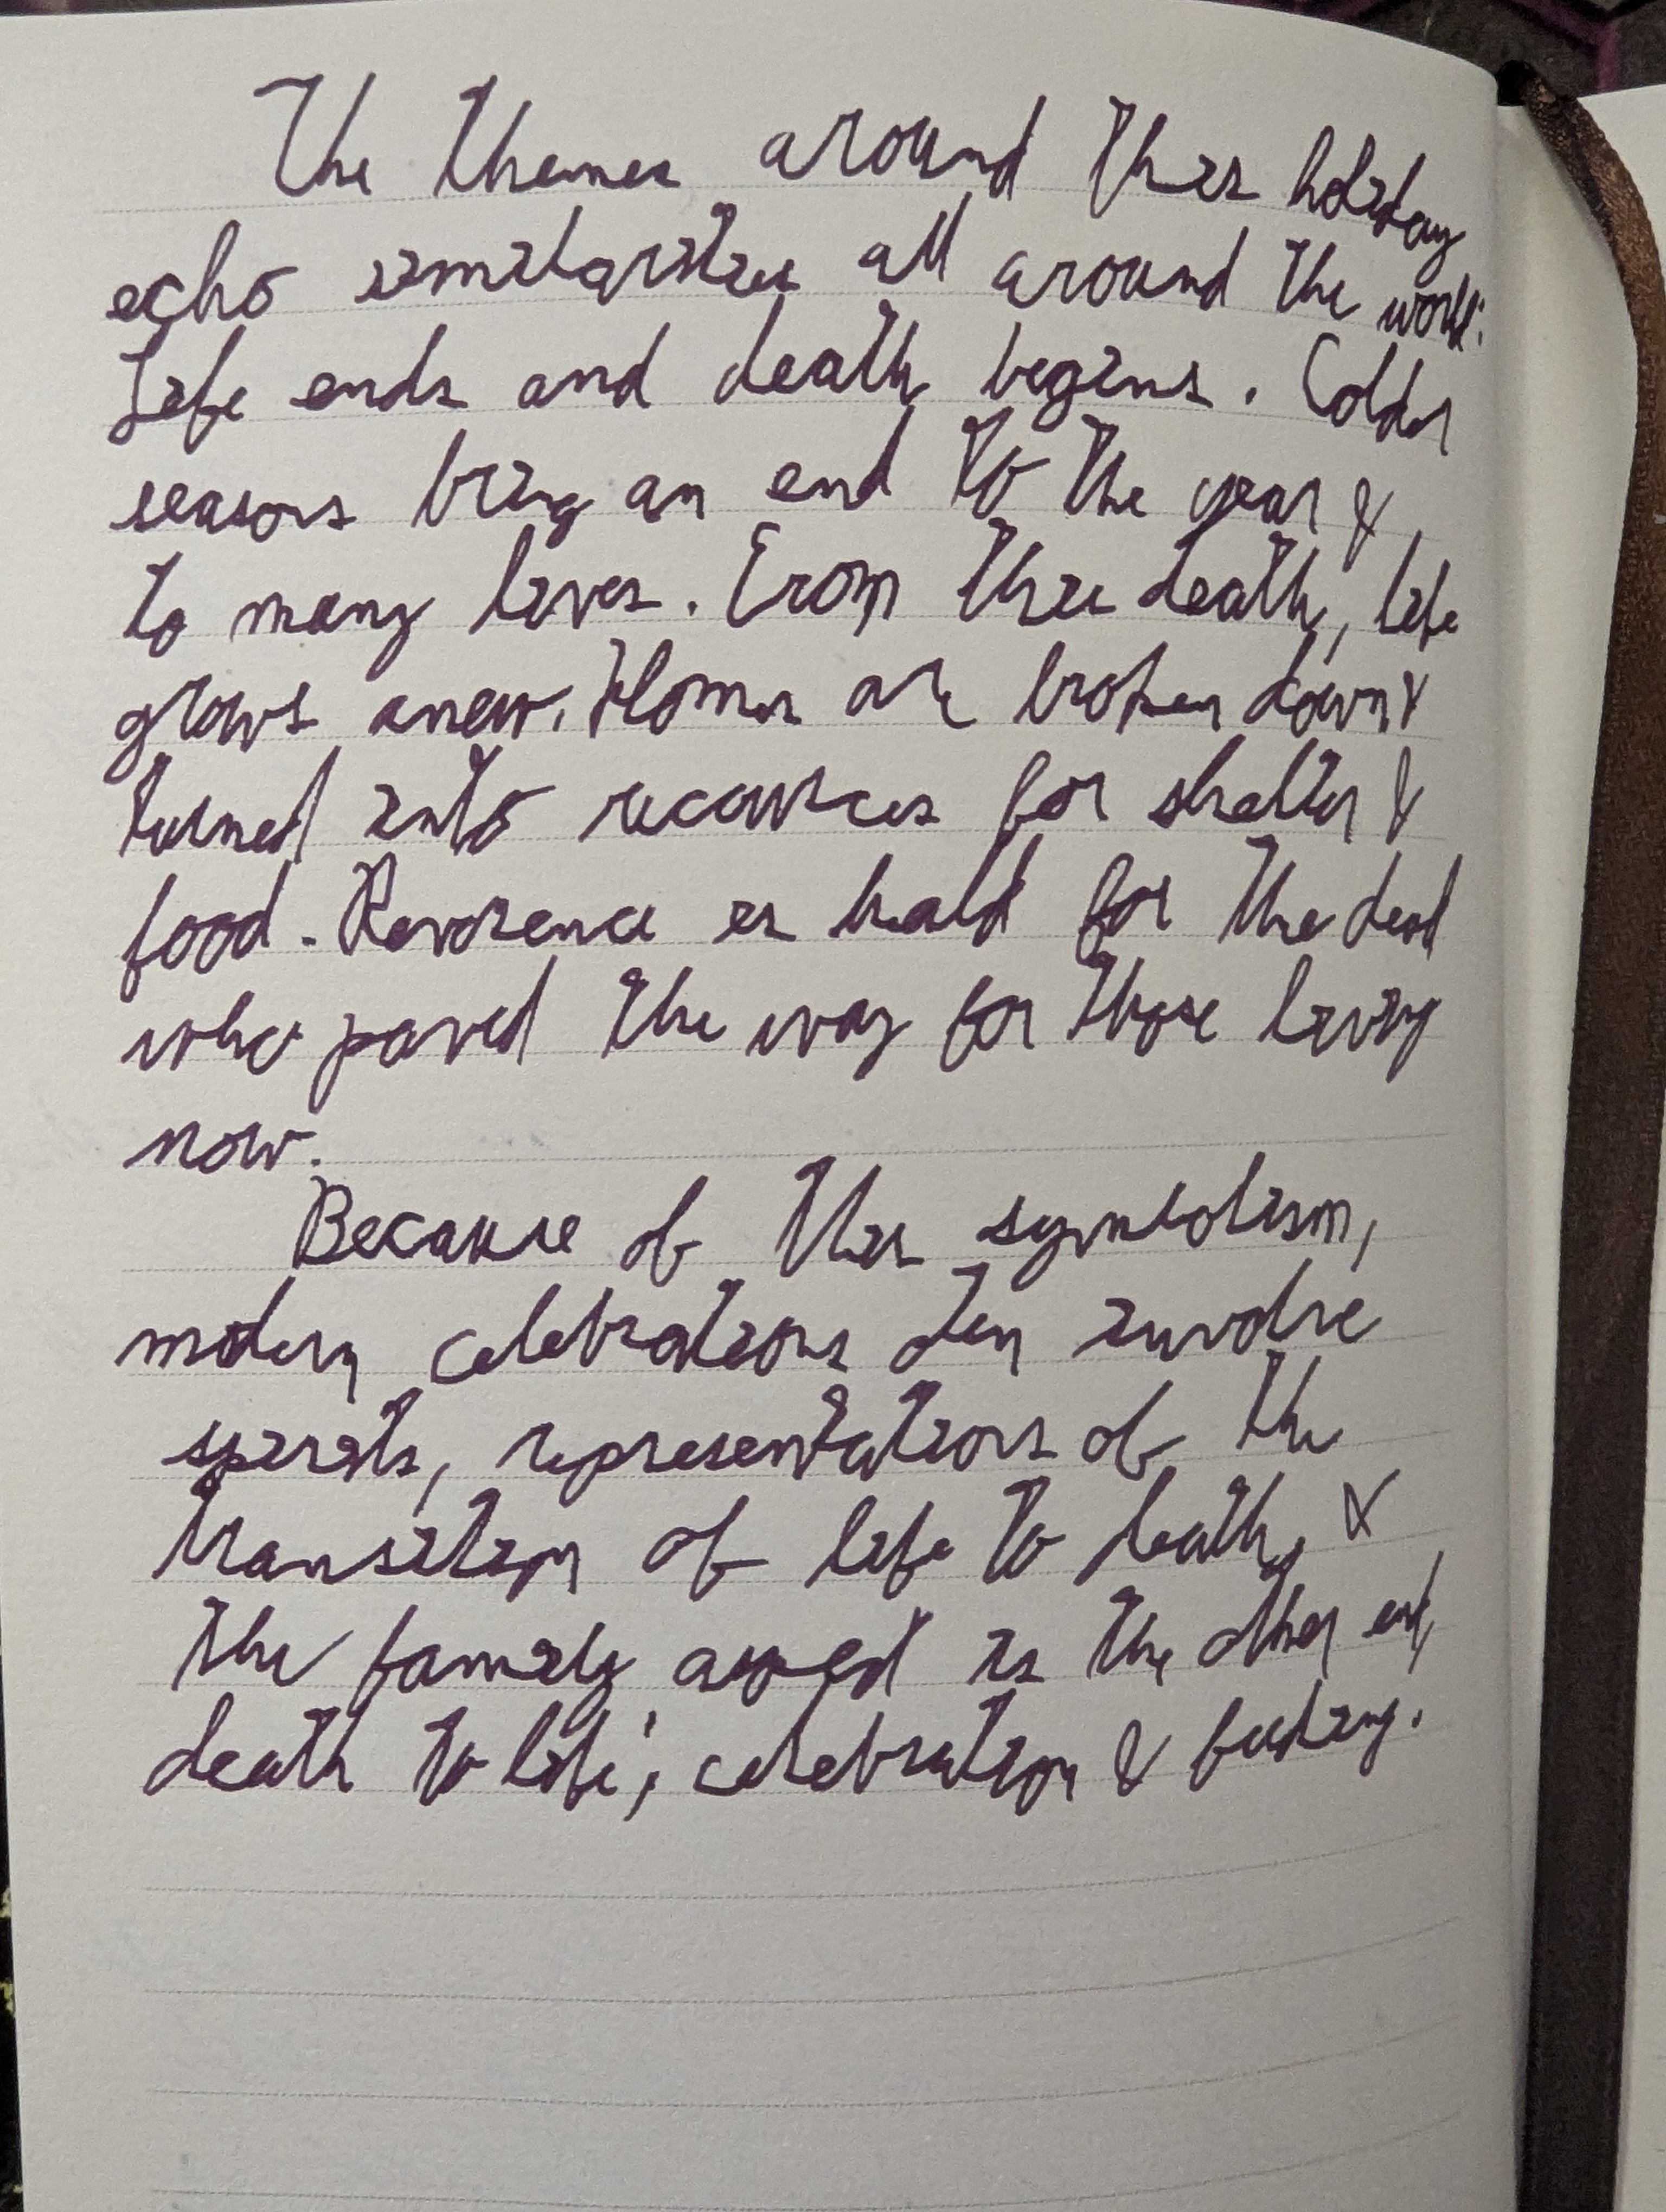 The themes around this holiday
echo similarities all around the world:
Life ends and death begins. Colder
seasons bring an end to the year &
to many lives. From this death, life
grows anew. Homes are broken down &
turned into recources for shelter &
food. Reverence is held for the dead
who paved the way for those living
now.
Because of this symbolism,
modern celebrations often involve
spirits, representations of the
transition of life to death, &
the family aspect is the other end,
death to life; celebration &